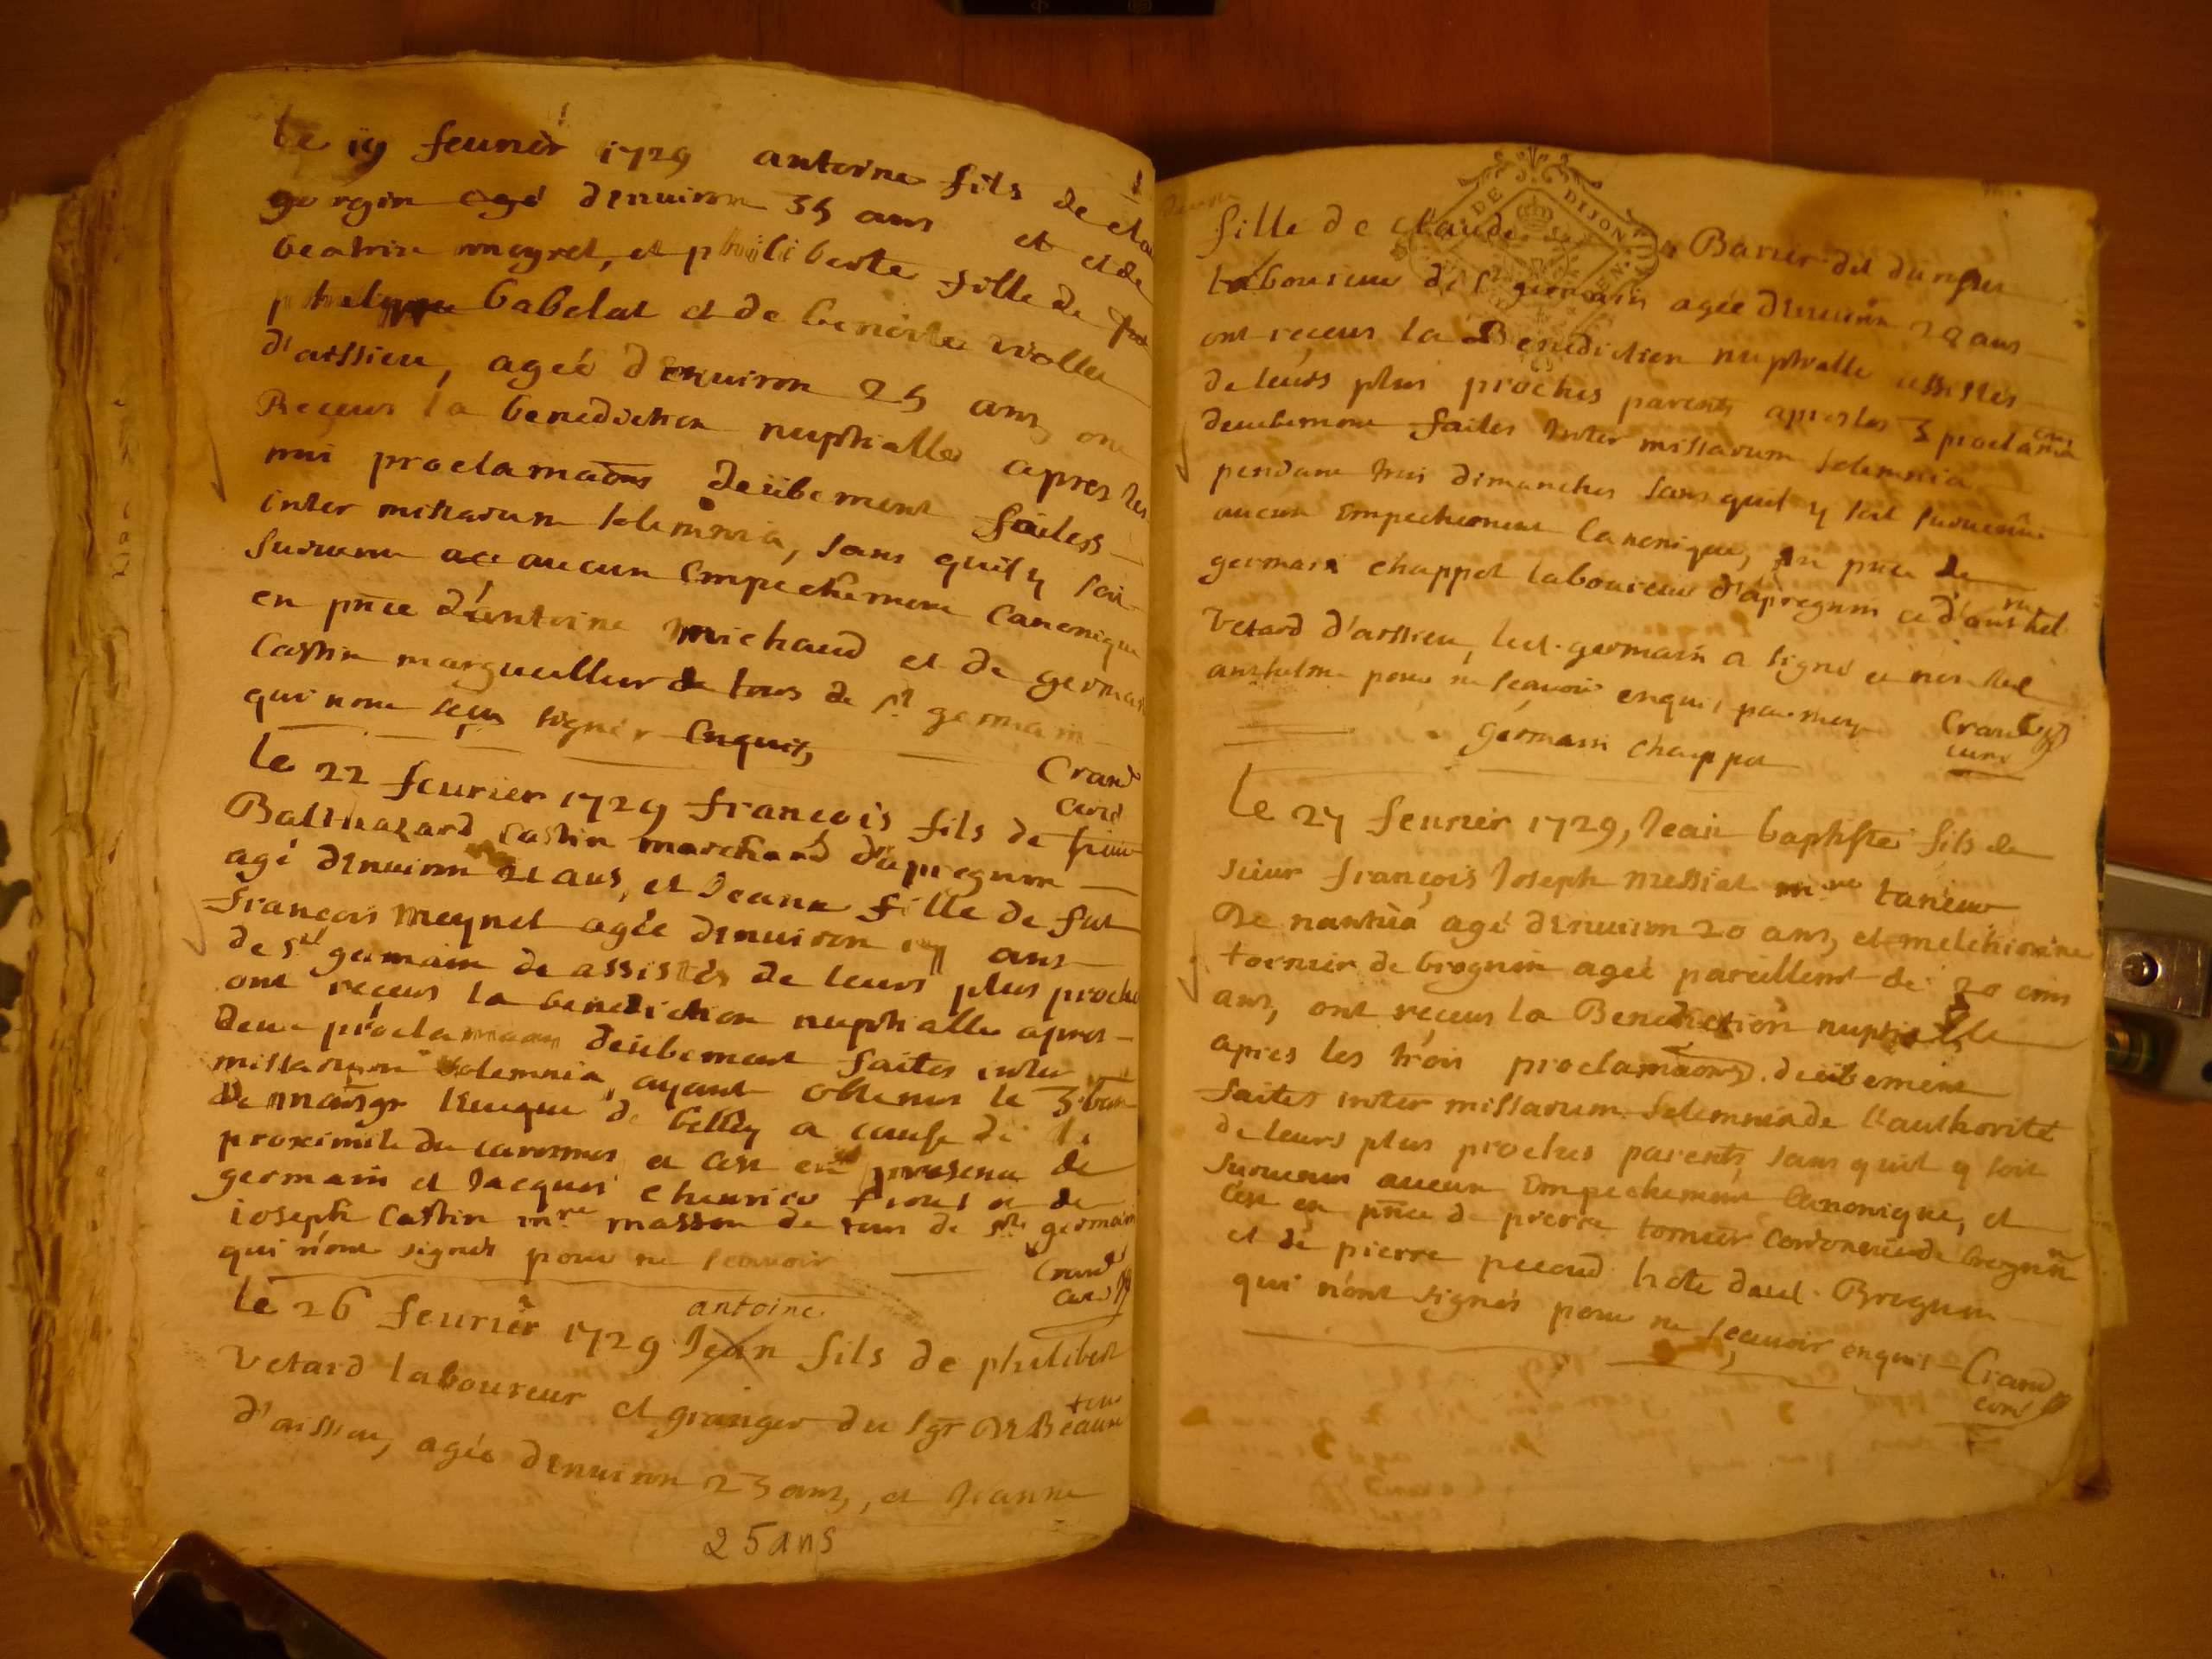 le 19 feurier 1729 antoine fils de cla
gorgin agé denuiron 35 ans et de
beatrix meyret, et philiberte fille de
phelippe babelat et de benoite
d'arssieu, agéé denuiron 25 ans, on
Receus la benediction nuptialle apres les
proclamaons deübement faites
inter missarum solemnia, sans quil y soit
suruenu aucun Empechement Canonique
en pnce d'antoine michaud et de germai
Castin margueillier de tous de st germain
qui nont sçeu signer Enquis,
Crand
curé
le 22 feurier 1729 françois fils de
Balthazard Castin marchand d'apregnin
agé denuiron 21 ans, et Jeanne fille de fut
françois meynet agée denuiron ans
de st germain de assistés de leurs plus proche
ont receus la benediction nuptialle apres
deux proclamaons deübement faites inter
missarum solemnia, ayant obtenus le 3 ban
de monsgr leueque de belley a cause de la
proximité du caresmes et cest en presence de
germain et Jacques et de
ioseph Castin mre masson de tous de st germain
qui n'ont signés pour ne scauoir
Crand
curé
le 26 feurier 1729 Jean fils de philibert
antoine
Vetard laboureur et granger du sgr De Beaure
d'arssieu, agée denuiron 23 ans, et Jeanne
25 ans
fille de claude Barrier dit
DE DIJON
laboureur de st germain agée denuiron 28 ans
ont receus la Benediction nuptialle assistés
de leurs plus proches parents apres les 3 proclamaons
deuebement faites Inter missarum solemnia
pendant trois dimanches sans quil y soit suruenu
aucun Empechement Canonique, En pnce de
germain chappot laboureur d'apregnin et d'anthel
Vetard d'arssieu, led. germain a signé et non led
anthelme pour ne scauoir enquis par moy
Crand
curé
germain Chappot
le 27 feurier 1729, Jean baptiste fils de
sieur françois Joseph messiat mre taneur
De nantua agé denuiron 20 ans, et melchionne
tornier de brognin agée pareillemt de 20 ans
ans, ont receus la Benediction nuptialle
apres les trois proclamaons deübement
faites inter missarum solemnia de l'authorité
de leurs plus proches parents, sans quil y soit
suruenu aucun Empechement Canonique, et
cest en pnce de pierre tornier Cordonnier de brognin
et de pierre pecoud hote dud. Brognin
qui n'ont signés pour ne scauoir enquis
Crand
curé